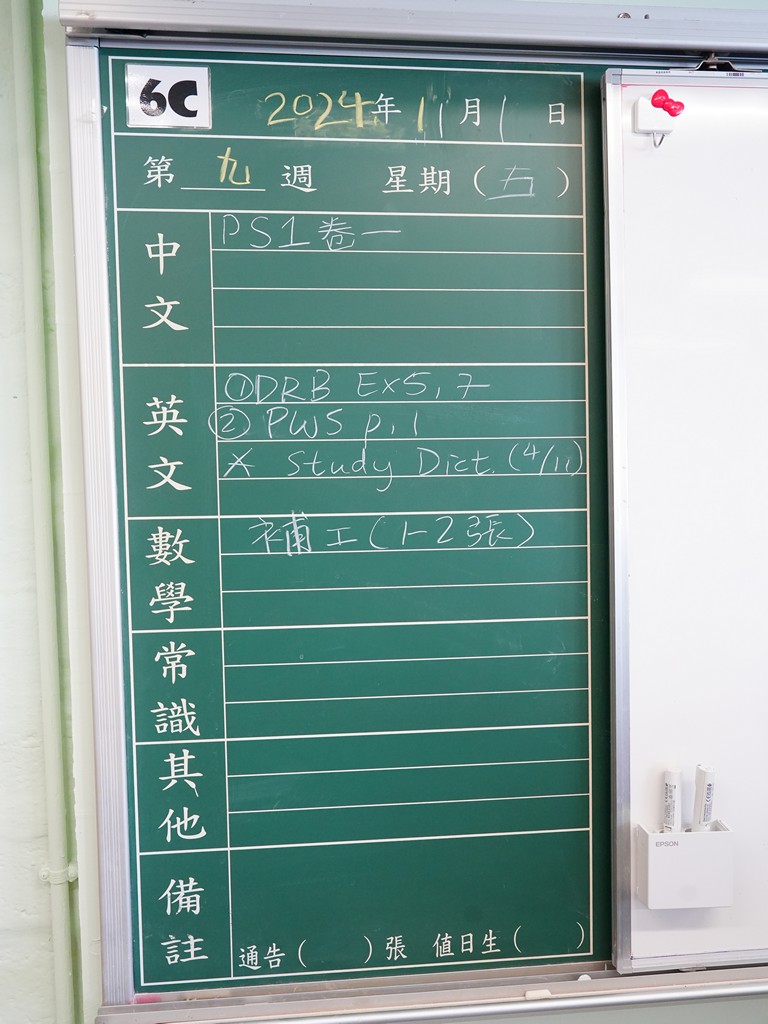 6C
2024年11月1日
第九週 星期(五)
中文
PS1 卷一
英文
①DRB Ex5,7
② PWS p.1
* Study Dict. (4/11)
數學
補工(1-2張)
常識
其他
備註
通告( )張 值日生( )
EPSON